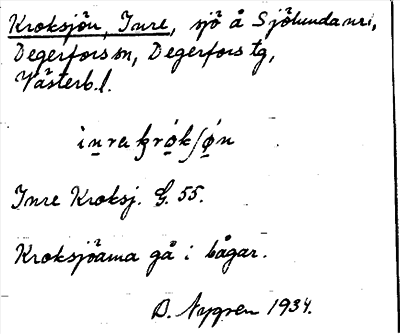 Kroksjön, Inre, sjö å Sjölunda nr 1,
Degerfors sn, Degerfors tg,
Västerb. l.
ìnrɐ krók/ǿn
Inre Kroksj. G. 55.
Kroksjöarna gå i bågar.
D. Nygren 1934.